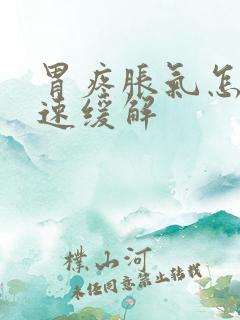 胃疼胀气怎
速缓解
朴山河
未经同意禁止转载